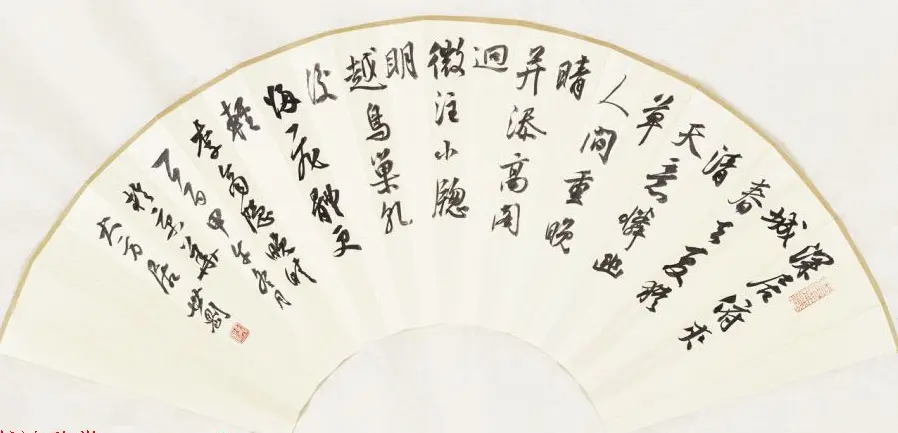 深居府夾
城
春去夏猶
清
天意憐幽
草
人間重晚
晴
并添高閣
迥
微注小牕
明
越鳥巢乾
後
歸飛體更
輕
李商隱晚晴
甲午冬月
於京華
大方居